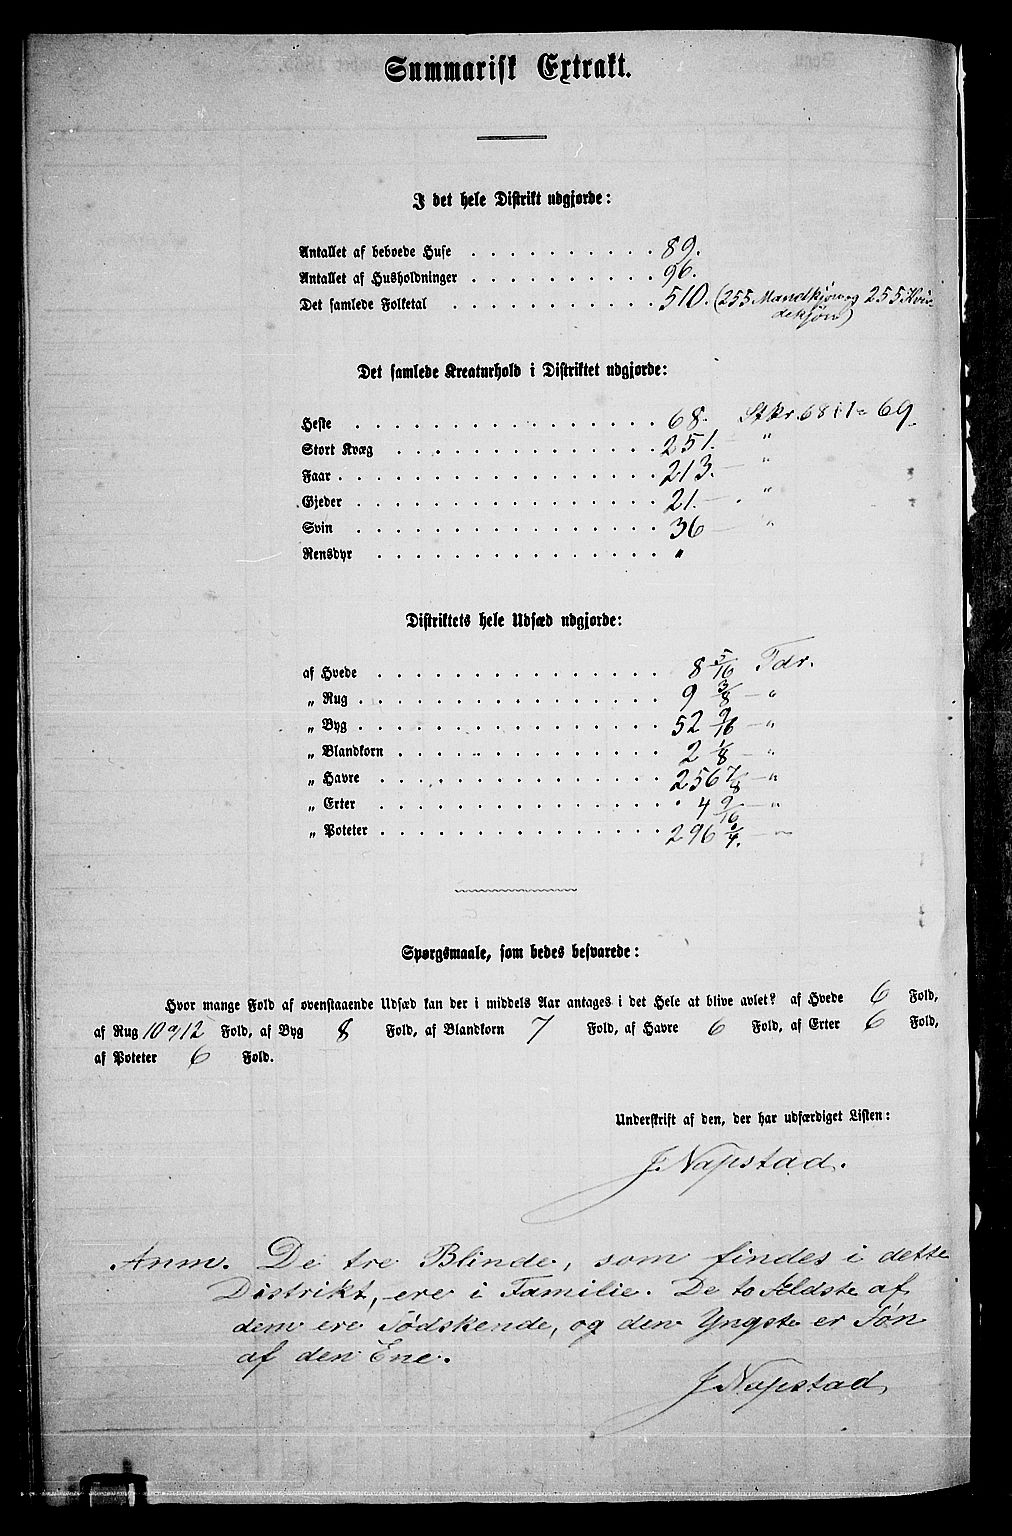 Summarisk Extrakt.
I det hele Distrikt udgjorde:
Antallet af beboede Huse . . . . . . . . . . . 89.
Antallet af Husholdninger . . . . . . . . . . . 96.
Det samlede Folketal . . . . . . . . . . . 510. (255 Mandkjøn og 255 Kvin-
dekjøn)
Det samlede Kreaturhold i Distriktet udgjorde:
Heste . . . . . . . . . . . . . . . . 68. Stkr. 68+1=69
Stort Kvæg . . . . . . . . . . . . . . 251. — "
Faar . . . . . . . . . . . . . . . . . 213. — "
Gjeder . . . . . . . . . . . . . . . . 21. — "
Svin . . . . . . . . . . . . . . . . 36 — "
Rensdyr . . . . . . . . . . . . . . . "
Distriktets hele Udsæd udgjorde:
af Hvede . . . . . . . . . . . . . . . 8 5/16 Tdr.
„ Rug . . . . . . . . . . . . . . . . 9 3/8 — "
„ Byg . . . . . . . . . . . . . . . . 52 9/16 — "
„ Blandkorn . . . . . . . . . . . . . . 2 1/8 — "
„ Havre . . . . . . . . . . . . . . . 256 7/8 — "
„ Erter . . . . . . . . . . . . . . . . 4 9/16 — "
„ Poteter . . . . . . . . . . . . . . . 296 — "
Spørgsmaale, som bedes besvarede:
Hvor mange Fold af ovenstaaende Udsæd kan der i middels Aar antages i det Hele at blive avlet? af Hvede 6 Fold,
af Rug 10 a 12 Fold, af Byg 8 Fold, af Blandkorn 7 Fold, af Havre 6 Fold, af Erter 6 Fold,
af Poteter 6 Fold.
Underskrift af den, der har udfærdiget Listen:
J. Napstad.
Anm. De tre Blinde, som findes i dette
Distrikt, ere i Familie. De to Ældste af
dem ere Södskende, og den Yngste er Søn
af den Ene.
J. Napstad